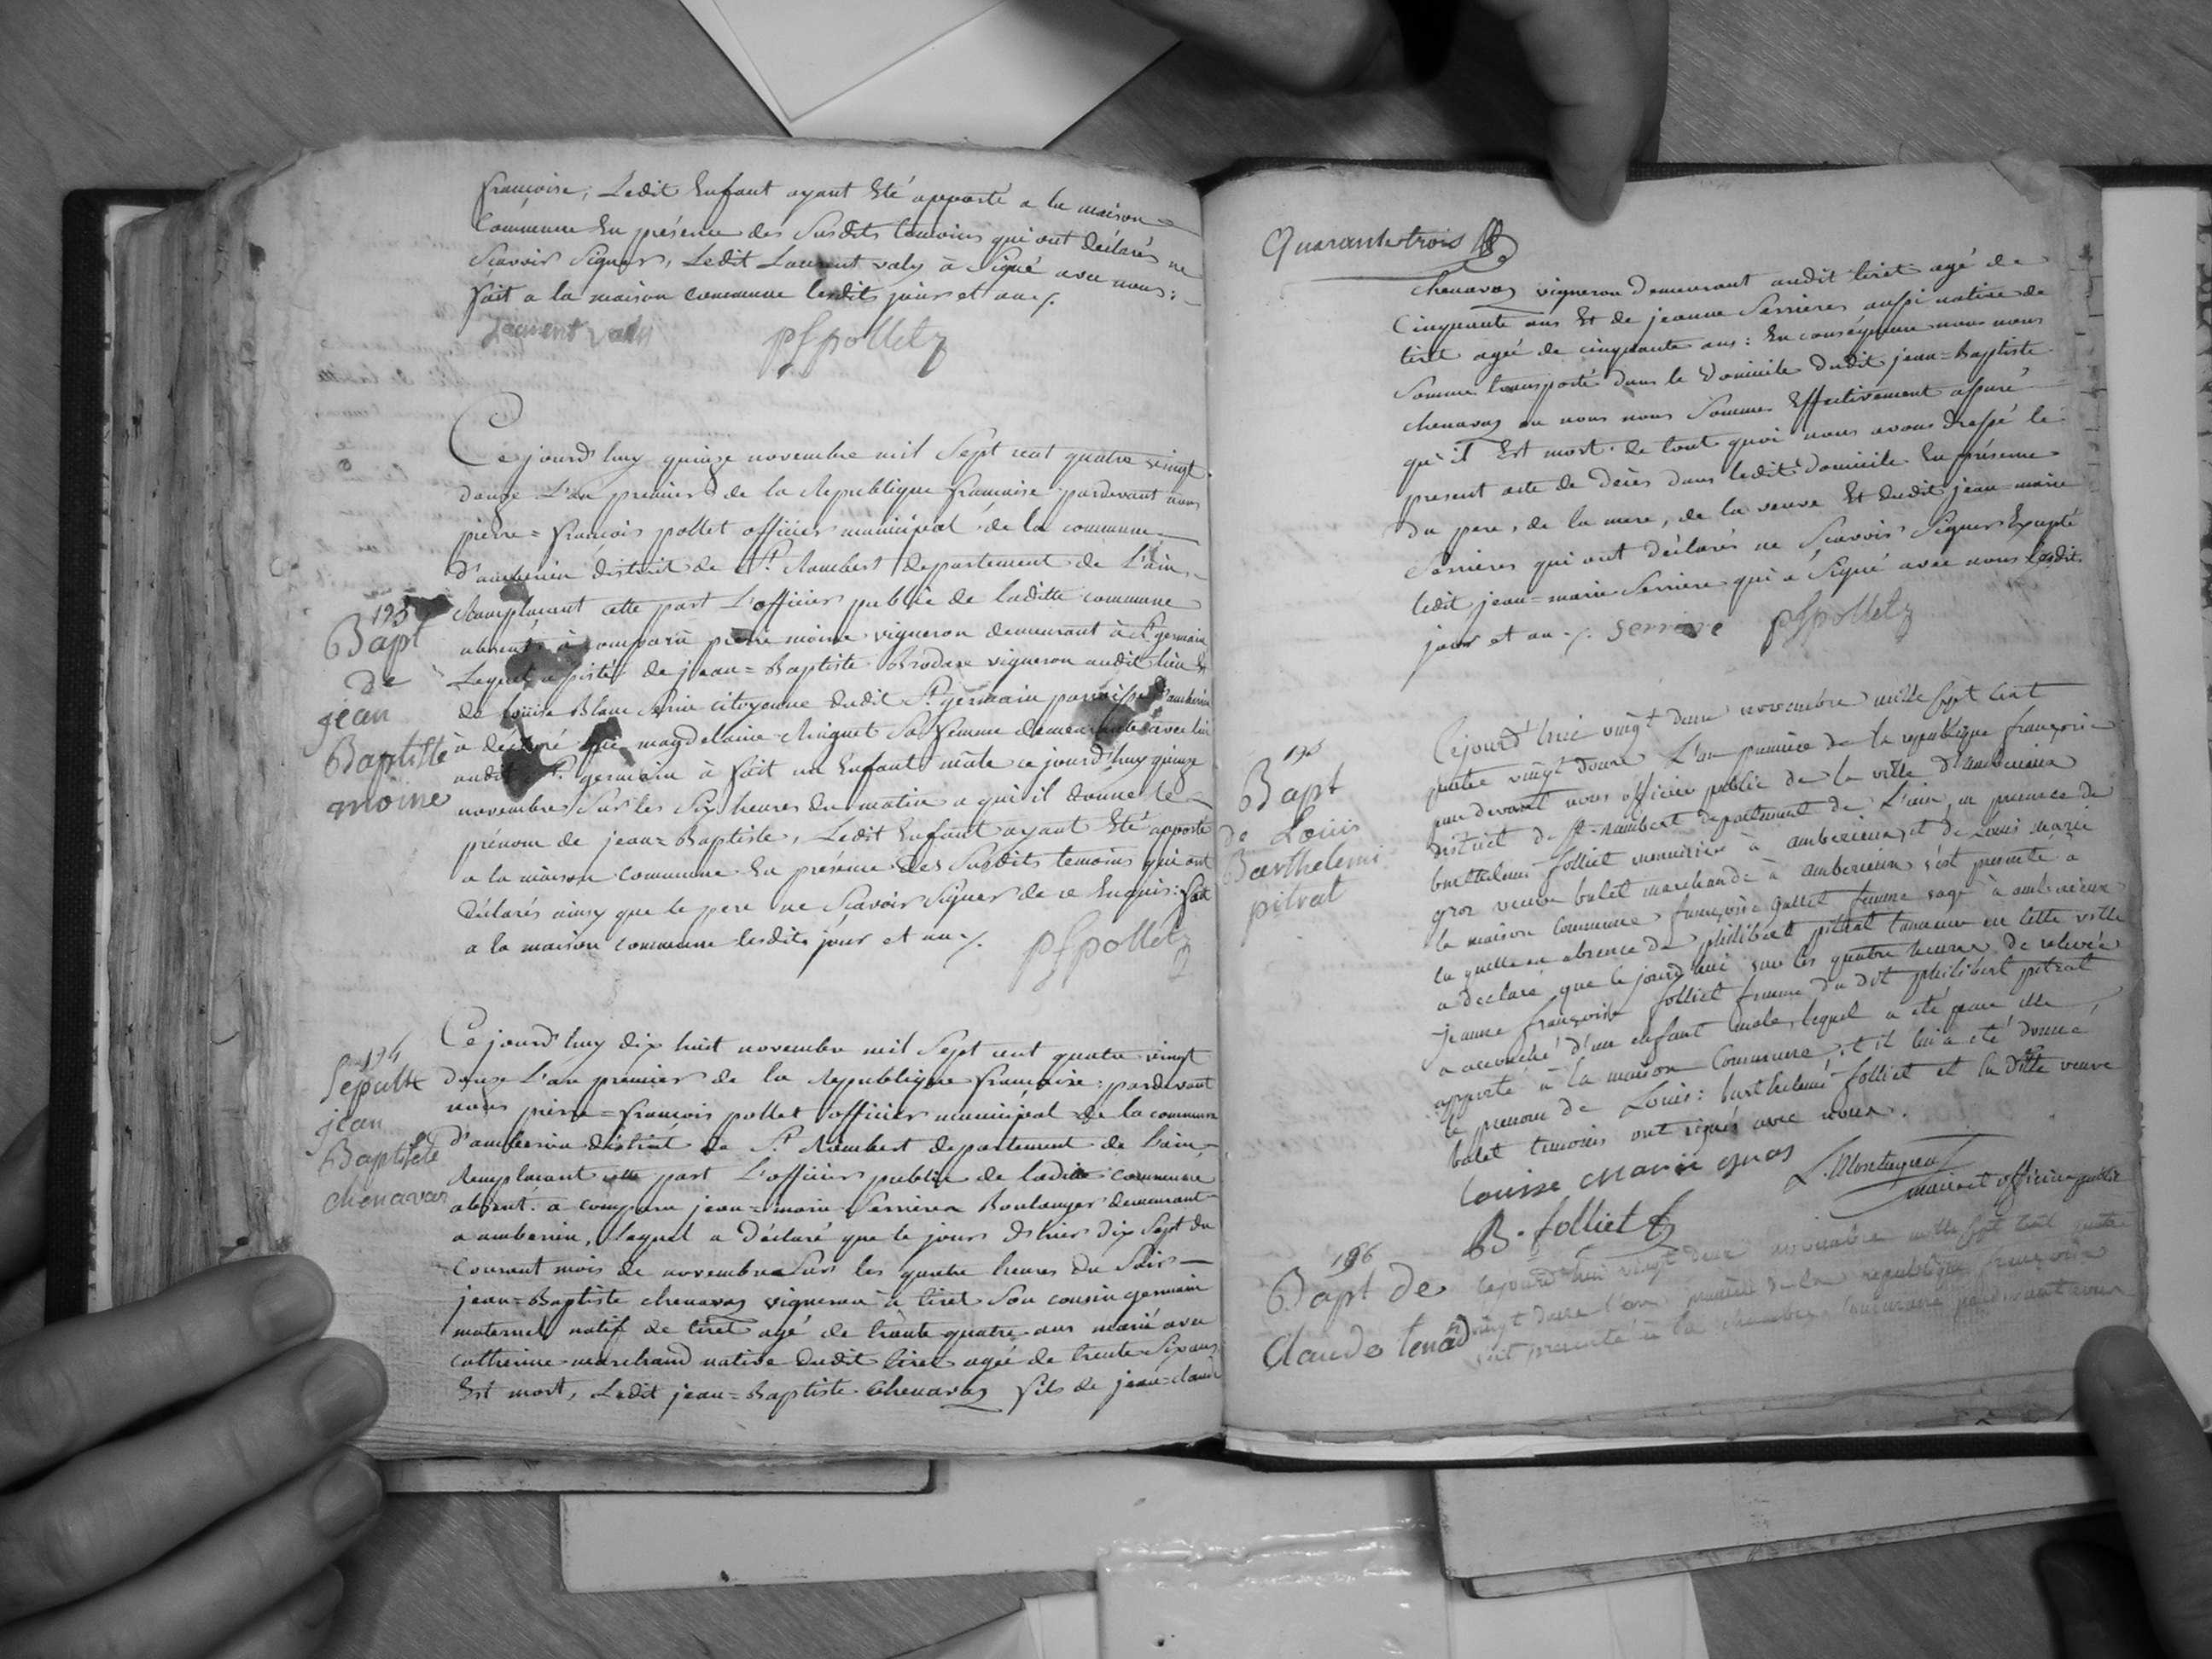 françoise, Ledit Enfant ayant Eté apporté a la maison
Commune En présence des Susdits temoins qui ont déclarés ne
Sçavoir Signer, Ledit Laurent valy à Signé avec nous:
fait a la maison commune lesdits jour et an ./.
Laurent valy pfpollet
Ce jourd'huy quinze novembre mil Sept cent quatre vingt
douze L'an premier de la Republique francaise pardevant nous
pierre=françois pollet officier municipal de la commune
d'amberieu district de St. Rambert departement de L'ain
Remplacant cette part L'officier public de laditte commune
absent, à comparu pierre moine vigneron demeurant à St. germain
Lequel assisté de jean=Baptiste Brodare vigneron audit lieu Et
de Louise Blanc citoyenne dudit St. germain parroisse d'amberieu
à declaré que magdelaine Ringuet Sa femme demeurante avec lui
audit St. germain à fait un Enfant mâle ce jourd'huy quinze
novembre Sur les Six heures du matin a qui il donne le
prénom de jean=Baptiste, Ledit Enfant ayant Eté apporté
a la maison commune En présence des Susdits temoins qui ont
déclarés ainsy que le pere ne Sçavoir Signer de ce Enquis: fait
a la maison commune lesdits jour et an ./. pfpollet
193
Bapt
de
jean
Baptiste
moine
Ce jourd'huy dix huit novembre mil Sept cent quatre vingt
douze L'an premier de la Republique francaise: pardevant
nous pierre=françois pollet officier municipal de la commune
d'amberieu district de St. Rambert departement de Lain
Remplacant cette part L'officier public de ladite commune
absent. a comparu jean=marie Serriere Boulanger demeurant
a amberieu, Lequel a déclaré que le jour d'hier dix Sept du
Courent mois de novembre Sur les quatre heures du Soir
jean=Baptiste chenavas vigneron à tiret Son cousin germain
maternel natif de tiret agé de trante quatre ans marié avec
catherine marchand native dudit tiret agée de trente Six ans
Est mort, Ledit jean=Baptiste Chenavas fils de jean=claude
194
Sepulte
jean
Baptiste
chenavas
Quarante trois
chenavas vigneron demeurant audit tiret agé de
Cinquante ans Et de jeanne Serrieres aussi native de
tiret agée de cinquante ans: En conséquence nous nous
Somme transporté dans le Domicile dudit jean=Baptiste
chenavas ou nous nous Somme Effectivement assuré
qu'il Est mort. de tout quoi nous avons dressé le
present acte de déces dans ledit domicile En présence
du pere, de la mere, de la veuve Et dudit jean=marie
Serrieres qui ont déclarés ne Sçavoir Signer Excepté
ledit jean=marie Serriere qui a Signé avec nous lesdits
jour et an ./. serriere pfpollet
Cejourd'huie vingt deux novembre mille sept cent
quatre vingt douze L'an premiere de la republique françoise
pardevant nous officier public de la ville d'amberieux
district de St. rambert departement de L'ain, en presence de
barthelemi folliet menuisier à amberieux et de Louis marie
gros veuve balet marchande à amberieux s'est presenté à
la maison commune françoise gallet femme sage à amberieux
la quelle en absence de philibert pitrat tanneur en cette ville
a declaré que le jourd'hui sur les quatre heures de relevée
jeanne françoise folliet femme du dit philibert pitrat
a accouché d'un enfant male, lequel a été par elle
apporté à la maison Commune, et il lui a été donné
le prenom de Louis: barthelemi folliet et la ditte veuve
balet temoins ont signés avec nous.
Louise Marie gros L. Montagnat
maire et officier public
B. folliet
195
Bapt
de Louis
Barthelemi
pitrat
196
Bapt de
Claude tenad
Cejourd'hui vingt deux novembre mille sept cent quatre
vingt douze l'an premiere de la republique françoise
s'est presenté à la chambre commune pardevant nous